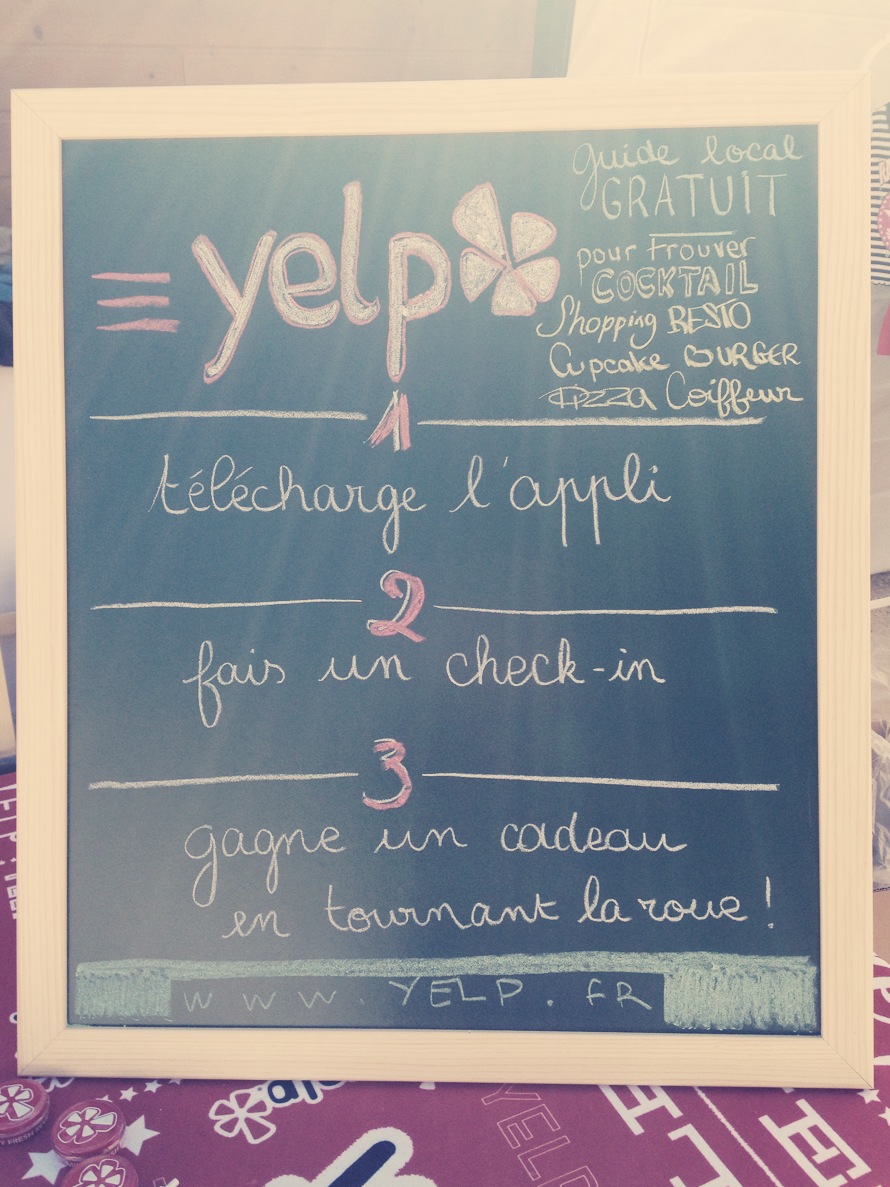 yelp
guide local
GRATUIT
pour trouver
COCKTAIL
Shopping RESTO
Cupcake BURGER
PIZZA Coiffeur
1
télécharge l'appli
2
fais un check-in
3
gagne un cadeau
en tournant la roue !
WWW.YELP.FR
YELP